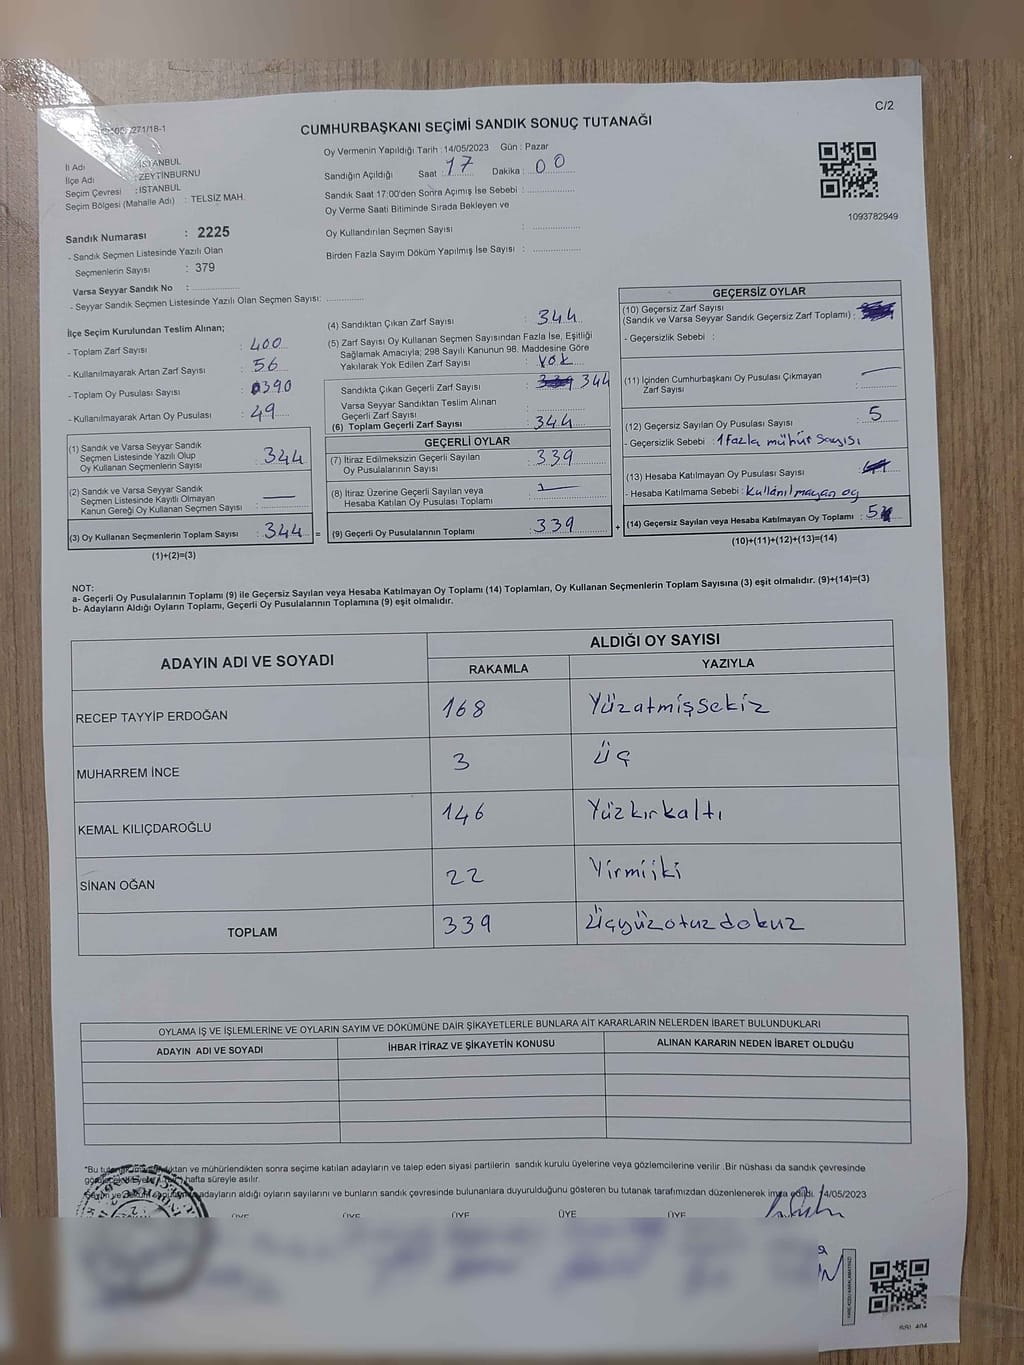 271/18-1
C/2
CUMHURBAŞKANI SEÇİMİ SANDIK SONUÇ TUTANAĞI
İl Adı : İSTANBUL
İlçe Adı : ZEYTİNBURNU
Seçim Çevresi : İSTANBUL
Seçim Bölgesi (Mahalle Adı) : TELSİZ MAH.
Oy Vermenin Yapıldığı Tarih : 14/05/2023 Gün : Pazar
Sandığın Açıldığı Saat : 17 Dakika : 00
Sandık Saat 17:00'den Sonra Açımış İse Sebebi :
Oy Verme Saati Bitiminde Sırada Bekleyen ve
Oy Kullandırılan Seçmen Sayısı :
Birden Fazla Sayım Döküm Yapılmış İse Sayısı :
1093782949
Sandık Numarası : 2225
- Sandık Seçmen Listesinde Yazılı Olan
Seçmenlerin Sayısı : 379
Varsa Seyyar Sandık No :
- Seyyar Sandık Seçmen Listesinde Yazılı Olan Seçmen Sayısı:
İlçe Seçim Kurulundan Teslim Alınan;
- Toplam Zarf Sayısı : 400
- Kullanılmayarak Artan Zarf Sayısı : 56
- Toplam Oy Pusulası Sayısı : 390
- Kullanılmayarak Artan Oy Pusulası : 49
(1) Sandık ve Varsa Seyyar Sandık
Seçmen Listesinde Yazılı Olup
Oy Kullanan Seçmenlerin Sayısı : 344
(2) Sandık ve Varsa Seyyar Sandık
Seçmen Listesinde Kayıtlı Olmayan
Kanun Gereği Oy Kullanan Seçmen Sayısı : —
(3) Oy Kullanan Seçmenlerin Toplam Sayısı : 344 =
(1)+(2)=(3)
(4) Sandıktan Çıkan Zarf Sayısı : 344
(5) Zarf Sayısı Oy Kullanan Seçmen Sayısından Fazla İse, Eşitliği
Sağlamak Amacıyla; 298 Sayılı Kanunun 98. Maddesine Göre
Yakılarak Yok Edilen Zarf Sayısı : Yok
Sandıkta Çıkan Geçerli Zarf Sayısı : 339 344
Varsa Seyyar Sandıktan Teslim Alınan
Geçerli Zarf Sayısı :
(6) Toplam Geçerli Zarf Sayısı : 344
GEÇERLİ OYLAR
(7) İtiraz Edilmeksizin Geçerli Sayılan
Oy Pusulalarının Sayısı : 339
(8) İtiraz Üzerine Geçerli Sayılan veya
Hesaba Katılan Oy Pusulası Toplamı : —
(9) Geçerli Oy Pusulalarının Toplamı : 339 +
GEÇERSİZ OYLAR
(10) Geçersiz Zarf Sayısı
(Sandık ve Varsa Seyyar Sandık Geçersiz Zarf Toplamı) :
- Geçersizlik Sebebi :
(11) İçinden Cumhurbaşkanı Oy Pusulası Çıkmayan
Zarf Sayısı : —
(12) Geçersiz Sayılan Oy Pusulası Sayısı : 5
- Geçersizlik Sebebi : 1 fazla mühür sayısı
(13) Hesaba Katılmayan Oy Pusulası Sayısı : 49
- Hesaba Katılmama Sebebi : Kullanılmayan oy
(14) Geçersiz Sayılan veya Hesaba Katılmayan Oy Toplamı : 5
(10)+(11)+(12)+(13)=(14)
NOT:
a- Geçerli Oy Pusulalarının Toplamı (9) ile Geçersiz Sayılan veya Hesaba Katılmayan Oy Toplamı (14) Toplamları, Oy Kullanan Seçmenlerin Toplam Sayısına (3) eşit olmalıdır. (9)+(14)=(3)
b- Adayların Aldığı Oyların Toplamı, Geçerli Oy Pusulalarının Toplamına (9) eşit olmalıdır.
ADAYIN ADI VE SOYADI
ALDIĞI OY SAYISI
RAKAMLA YAZIYLA
RECEP TAYYİP ERDOĞAN 168 Yüzatmişsekiz
MUHARREM İNCE 3 Üç
KEMAL KILIÇDAROĞLU 146 Yüzkırkaltı
SİNAN OĞAN 22 Yirmiiki
TOPLAM 339 Üçyüzotuzdokuz
OYLAMA İŞ VE İŞLEMLERİNE VE OYLARIN SAYIM VE DÖKÜMÜNE DAİR ŞİKAYETLERLE BUNLARA AİT KARARLARIN NELERDEN İBARET BULUNDUKLARI
ADAYIN ADI VE SOYADI İHBAR İTİRAZ VE ŞİKAYETİN KONUSU ALINAN KARARIN NEDEN İBARET OLDUĞU
mühürlendikten sonra seçime katılan adayların ve talep eden siyasi partilerin sandık kurulu üyelerine veya gözlemcilerine verilir. Bir nüshası da sandık çevresinde
hafta süreyle asılır.
adayların aldığı oyların sayılarını ve bunların sandık çevresinde bulunanlara duyurulduğunu gösteren bu tutanak tarafımızdan düzenlenerek imza edildi. 14/05/2023
ÜYE ÜYE ÜYE ÜYE ÜYE